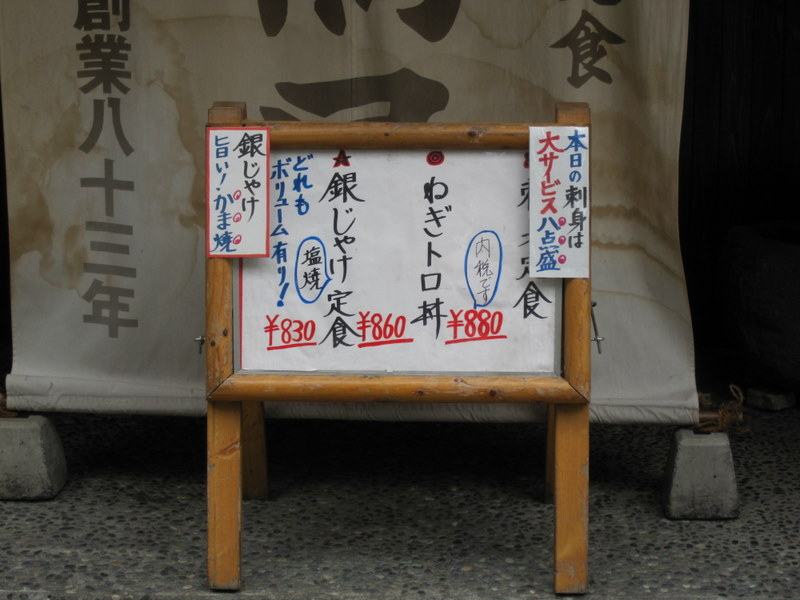 創業八十三年
食
本日の刺身は
大サービス八点盛
定食
内税です
¥880
ねぎトロ丼
¥860
銀じゃけ定食
塩焼
¥830
どれも
ボリューム有り!
銀じゃけ
旨い!かま焼